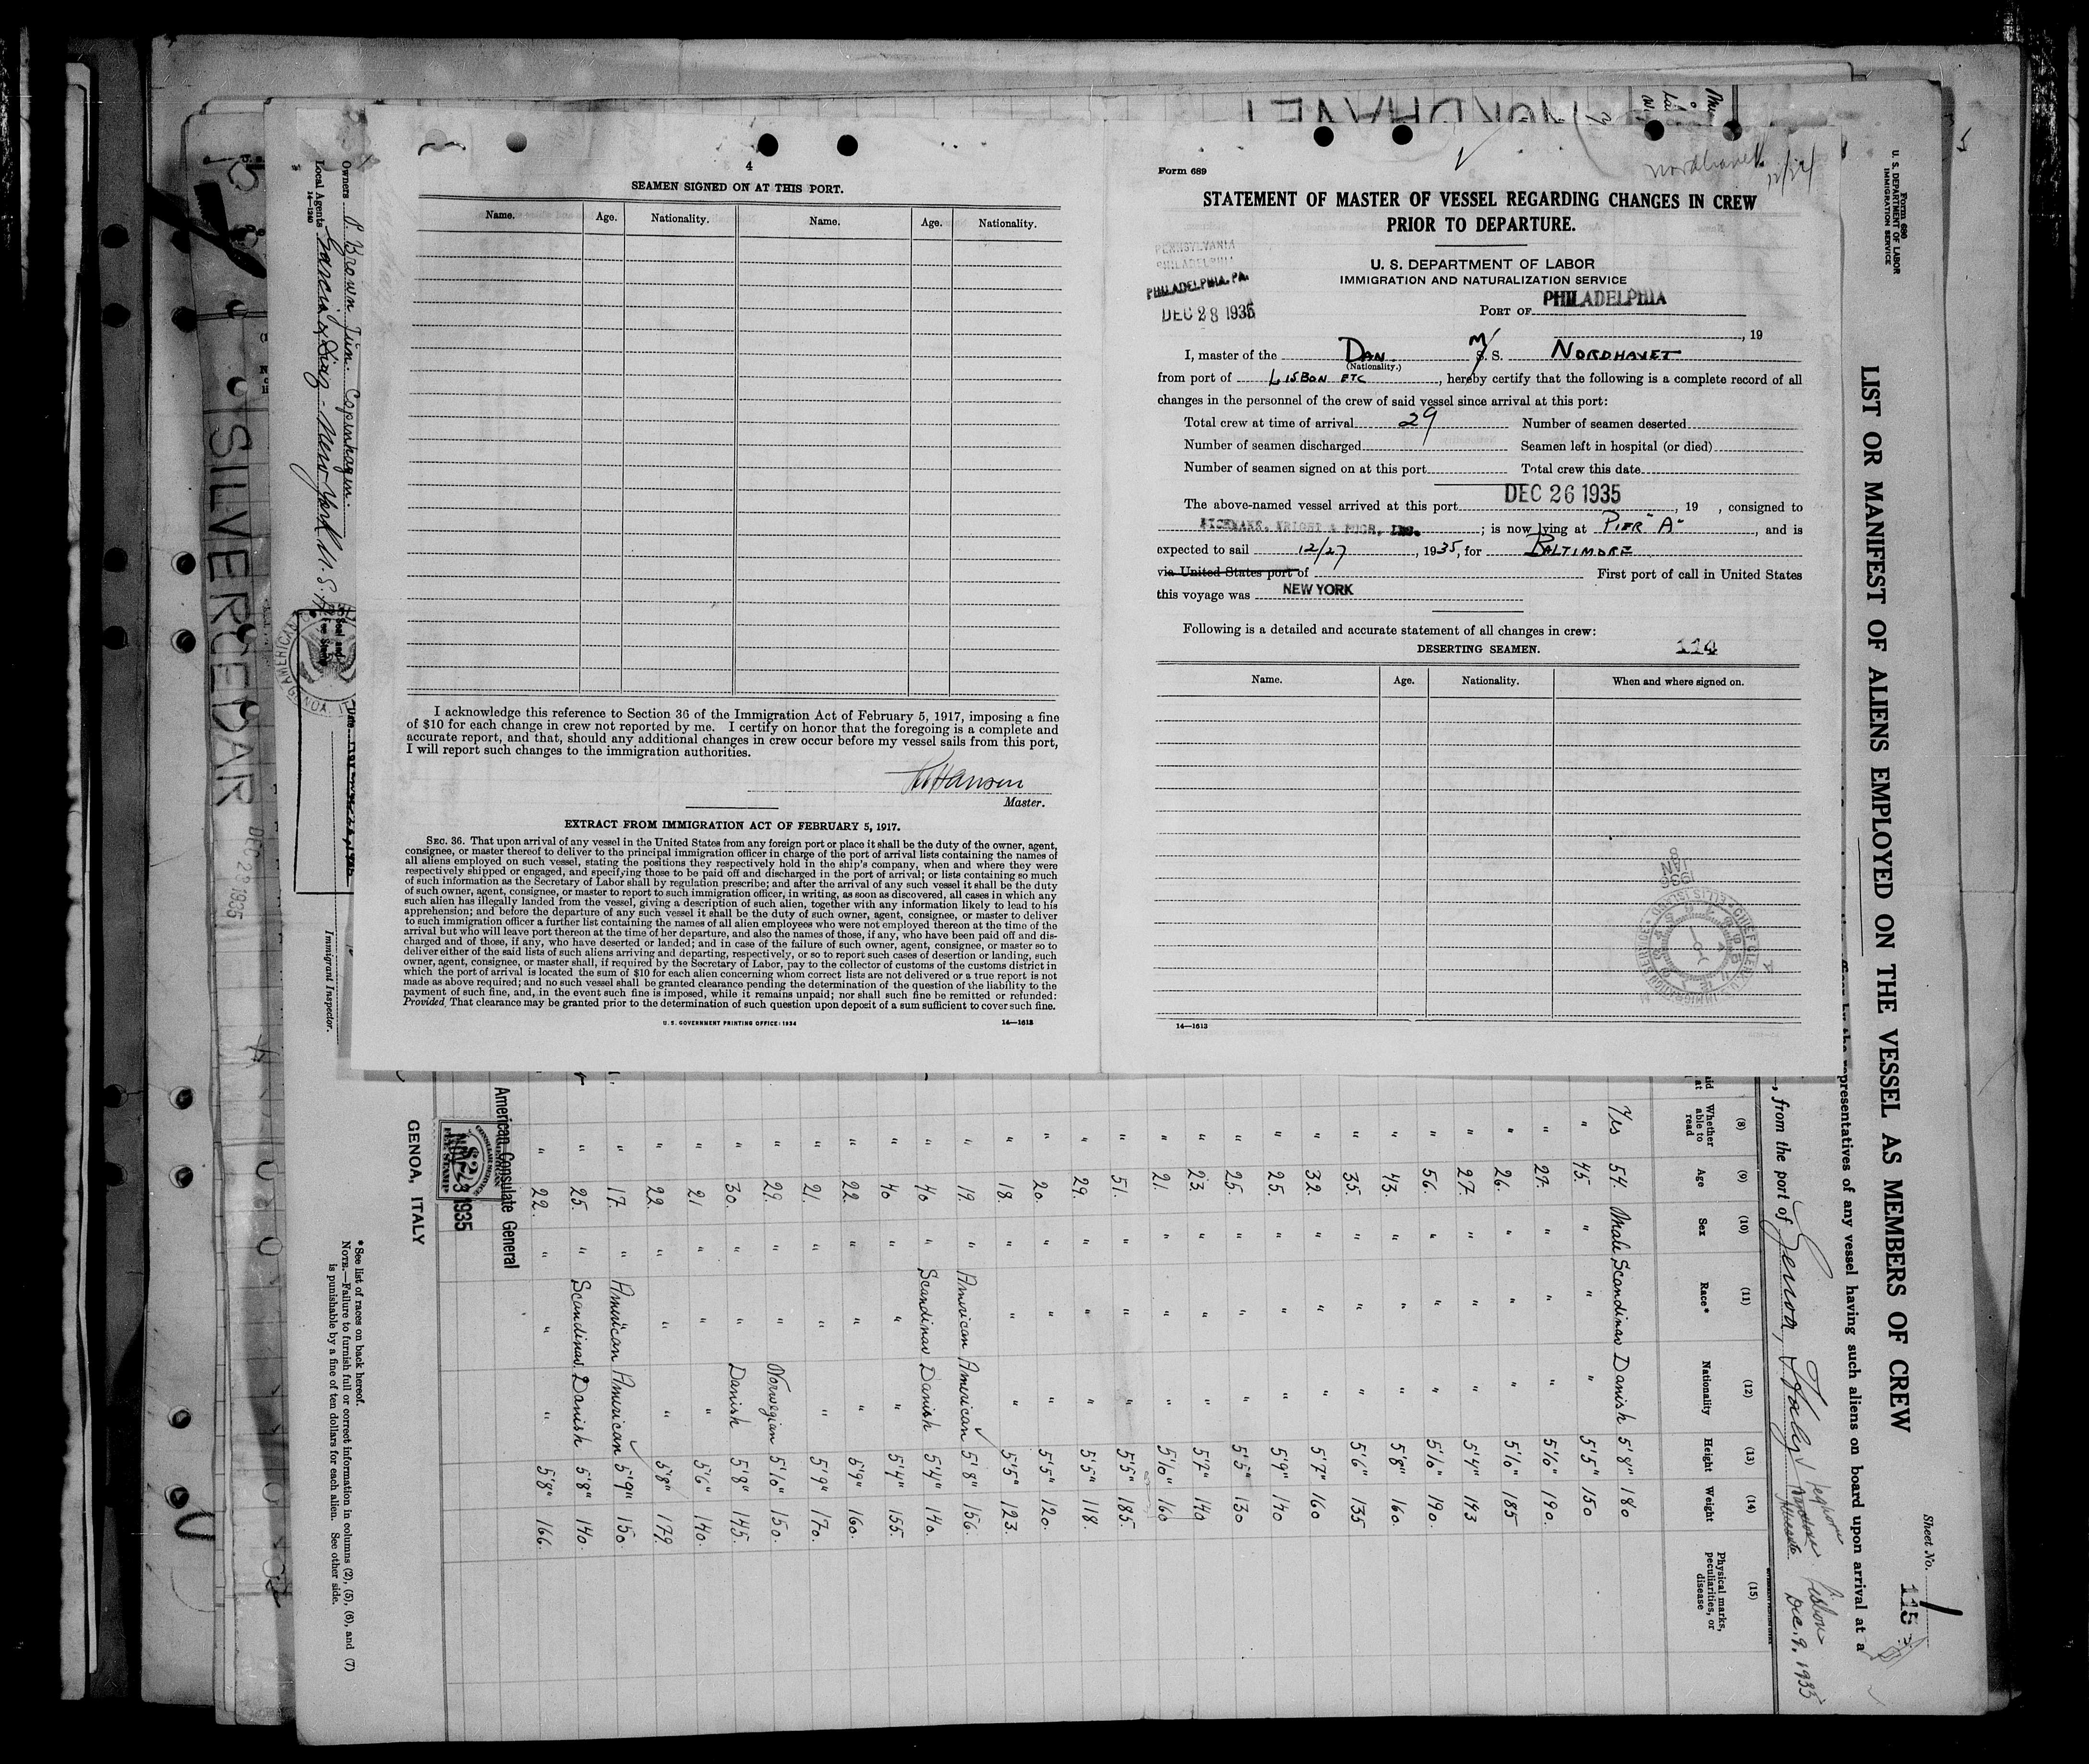 4
SEAMEN SIGNED ON AT THIS PORT.
Name. Age. Nationality. Name. Age. Nationality.
I acknowledge this reference to Section 36 of the Immigration Act of February 5, 1917, imposing a fine
of $10 for each change in crew not reported by me. I certify on honor that the foregoing is a complete and
accurate report, and that, should any additional changes in crew occur before my vessel sails from this port,
I will report such changes to the immigration authorities.
Hansen
Master.
EXTRACT FROM IMMIGRATION ACT OF FEBRUARY 5, 1917.
SEC. 36. That upon arrival of any vessel in the United States from any foreign port or place it shall be the duty of the owner, agent,
consignee, or master thereof to deliver to the principal immigration officer in charge of the port of arrival lists containing the names of
all aliens employed on such vessel, stating the positions they respectively hold in the ship's company, when and where they were
respectively shipped or engaged, and specifying those to be paid off and discharged in the port of arrival; or lists containing so much
of such information as the Secretary of Labor shall by regulation prescribe; and after the arrival of any such vessel it shall be the duty
of such owner, agent, consignee, or master to report to such immigration officer, in writing, as soon as discovered, all cases in which any
such alien has illegally landed from the vessel, giving a description of such alien, together with any information likely to lead to his
apprehension; and before the departure of any such vessel it shall be the duty of such owner, agent, consignee, or master to deliver
to such immigration officer a further list containing the names of all alien employees who were not employed thereon at the time of the
arrival but who will leave port thereon at the time of her departure, and also the names of those, if any, who have been paid off and dis-
charged and of those, if any, who have deserted or landed; and in case of the failure of such owner, agent, consignee, or master so to
deliver either of the said lists of such aliens arriving and departing, respectively, or so to report such cases of desertion or landing, such
owner, agent, consignee, or master shall, if required by the Secretary of Labor, pay to the collector of customs of the customs district in
which the port of arrival is located the sum of $10 for each alien concerning whom correct lists are not delivered or a true report is not
made as above required; and no such vessel shall be granted clearance pending the determination of the question of the liability to the
payment of such fine, and, in the event such fine is imposed, while it remains unpaid; nor shall such fine be remitted or refunded:
Provided, That clearance may be granted prior to the determination of such question upon deposit of a sum sufficient to cover such fine.
U. S. GOVERNMENT PRINTING OFFICE: 1934 14—1613
Form 689
Nordhavet 12/27
STATEMENT OF MASTER OF VESSEL REGARDING CHANGES IN CREW
PRIOR TO DEPARTURE.
U. S. DEPARTMENT OF LABOR
IMMIGRATION AND NATURALIZATION SERVICE
PENNSYLVANIA
PHILADELPHIA
PHILADELPHIA, PA.
DEC 28 1935
PORT OF PHILADELPHIA
, 19
I, master of the DAN M/S. S. NORDHAVET
(Nationality.)
from port of LISBON ETC, hereby certify that the following is a complete record of all
changes in the personnel of the crew of said vessel since arrival at this port:
Total crew at time of arrival 29 Number of seamen deserted
Number of seamen discharged Seamen left in hospital (or died)
Number of seamen signed on at this port Total crew this date
The above-named vessel arrived at this port DEC 26 1935, 19 , consigned to
INC. ; is now lying at PIER "A", and is
expected to sail 12/27, 1935, for BALTIMORE
via United States port of First port of call in United States
this voyage was NEW YORK
Following is a detailed and accurate statement of all changes in crew:
DESERTING SEAMEN. 114
Name. Age. Nationality. When and where signed on.
1936
JAN
8
14—1613
Form 680
U. S. DEPARTMENT OF LABOR
IMMIGRATION SERVICE
LIST OR MANIFEST OF ALIENS EMPLOYED ON THE VESSEL AS MEMBERS OF CREW
Sheet No. 1
115
representatives of any vessel having such aliens on board upon arrival at a
, from the port of Genoa, Italy Leghorn Lisbon Dec. 9. 1935
(8) (9) (10) (11) (12) (13) (14) (15)
Whether able to read Age Sex Race* Nationality Height Weight Physical marks, peculiarities, or disease
Yes 54. Male Scandinav Danish 5'8" 180
" 45. " " " 5'5" 150
" 27. " " " 5'10" 190.
" 26. " " " 5'10" 185
" 27. " " " 5'4" 193
" 56. " " " 5'10" 190.
" 43. " " " 5'8" 160.
" 35. " " " 5'6" 135
" 32. " " " 5'7" 160
" 25. " " " 5'9" 140
" 25. " " " 5'5" 130
" 23. " " " 5'7" 140
" 21. " " " 5'10" 160
" 51. " " " 5'5" 185.
" 29. " " " 5'5" 118.
" 20. " " " 5'5" 120.
" 18. " " " 5'5" 123.
" 19. " American American 5'8" 156.
" 40 " Scandinav Danish 5'4" 140.
" 40 " " " 5'4" 155.
" 22. " " " 5'9" 160.
" 21. " " " 5'9" 170.
" 29. " " Norwegian 5'10" 150.
" 30. " " Danish 5'8" 145.
" 21 " " " 5'6" 140.
" 22. " " " 5'8" 179.
" 17. " American American 5'9" 150.
" 25. " Scandinav. Danish 5'8" 140.
" 22. " " " 5'8" 166.
American Consulate General
GENOA, ITALY
$2
FEE STAMP
1935
*See list of races on back hereof.
NOTE.—Failure to furnish full or correct information in columns (2), (5), (6), and (7)
is punishable by a fine of ten dollars for each alien. See other side.
Owners A. Brown Jun. Copenhagen.
Local Agents Garcia & Diaz - New York U. S. A.
14—1240
Seal and
Fee Stamp
Immigrant Inspector.
SILVERCEDAR
DEC 23 1935
NORDHAVET